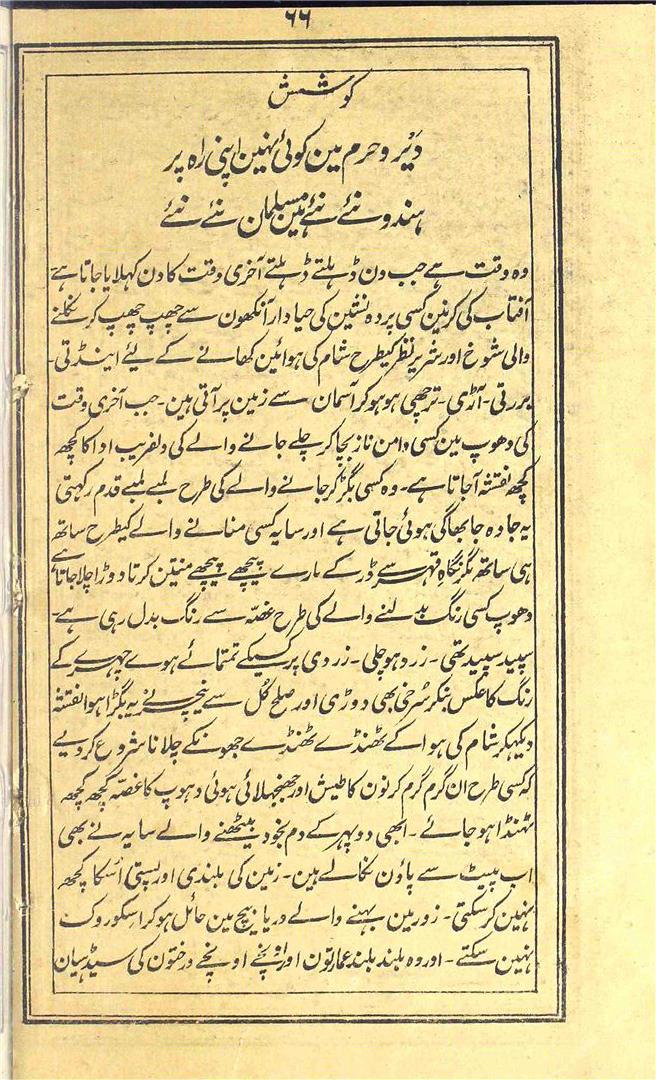 ۶۶
کوشش
دَیر و حرم مین کوئی نہین اپنی راہ پر
ہندو نئے نئے ہین مسلمان نئے نئے
وہ وقت ہے جب دن ڈہلتے ڈہلتے آخری وقت کا دن کہلایا جاتا ہے
آفتاب کی کرنین کسی پردہ نشین کی حیادار آنکھون سے چھپ چھپ کر نکلنے
والی شوخ اور شریر نظر کیطرح شام کی ہوائین کھانے کے لیئے اینڈتی۔
بررتی۔ آڑی۔ ترچھی ہو ہو کر آسمان سے زمین پر آتی ہین۔ جب آخری وقت
کی دھوپ مین کسی دامن ناز بچا کر چلے جانے والے کی دلفریب ادا کا کچھ
کچھ نقشہ آجاتا ہے۔ وہ کسی بگڑ کر جانے والے کی طرح لمبے لمبے قدم رکہتی
یہ جا وہ جا بھاگی ہوئی جاتی ہے اور سایہ کسی منانے والے کیطرح ساتھ
ہی ساتھ مگر نگاہِ قہر سے ڈر کے مارے پیچھے پیچھے منتین کرتا دوڑا چلا جاتا ہے
دھوپ کسی رنگ بدلنے والے کی طرح غصّہ سے رنگ بدل رہی ہے۔
سپید سپید تھی۔ زرد ہو چلی۔ زردی پر کسیکے تمتمائے ہوے چہرے کے
رنگ کا عکس بنکر سُرخی بھی دوڑی اور صلح کُل سے نیچر نے یہ بگڑا ہوا نقشہ
دیکہکر شام کی ہوا کے ٹھنڈے ٹھنڈے جھونکے چلانا شروع کر دیے
کہ کسی طرح ان گرم گرم کرنون کا طیش اور جھنجہلائی ہوئی دہوپ کا غصّہ کچھ کچھ
ٹہنڈا ہو جائے۔ ابھی دوپہر کے دم بخود بیٹھنے والے سایہ نے بھی
اب پیٹ سے پاؤن نکالے ہین۔ زمین کی بلندی اور پستی اُسکا کچھ
نہین کر سکتی۔ زور مین بہنے والے دریا بیچ مین حائل ہو کر اسکو روک
نہین سکتے۔ اور وہ بلند بلند عمارتون اور اونچے اونچے درختون کی سیڈہیان